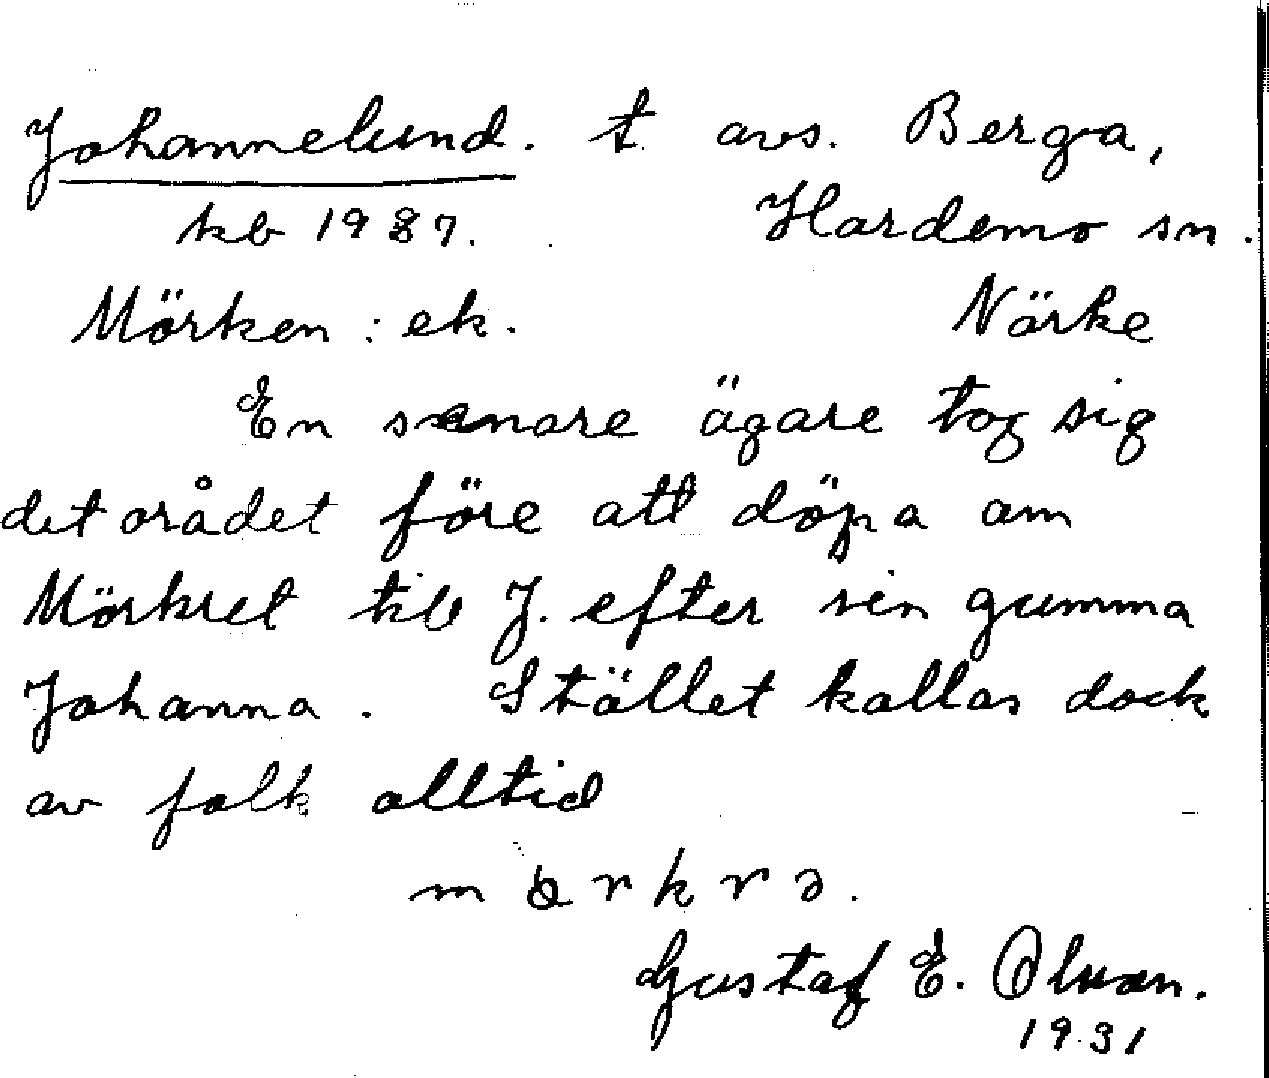 Johannelund. t. avs. Berga,
kb 1987. Hardemo sn.
Mörken : ek. Närke
En senare ägare tog sig
det orådet före att döpa om
Mörkret till J. efter sin gumma
Johanna. Stället kallas dock
av folk alltid
m rkrə.
Gustaf E. Olvon.
1931